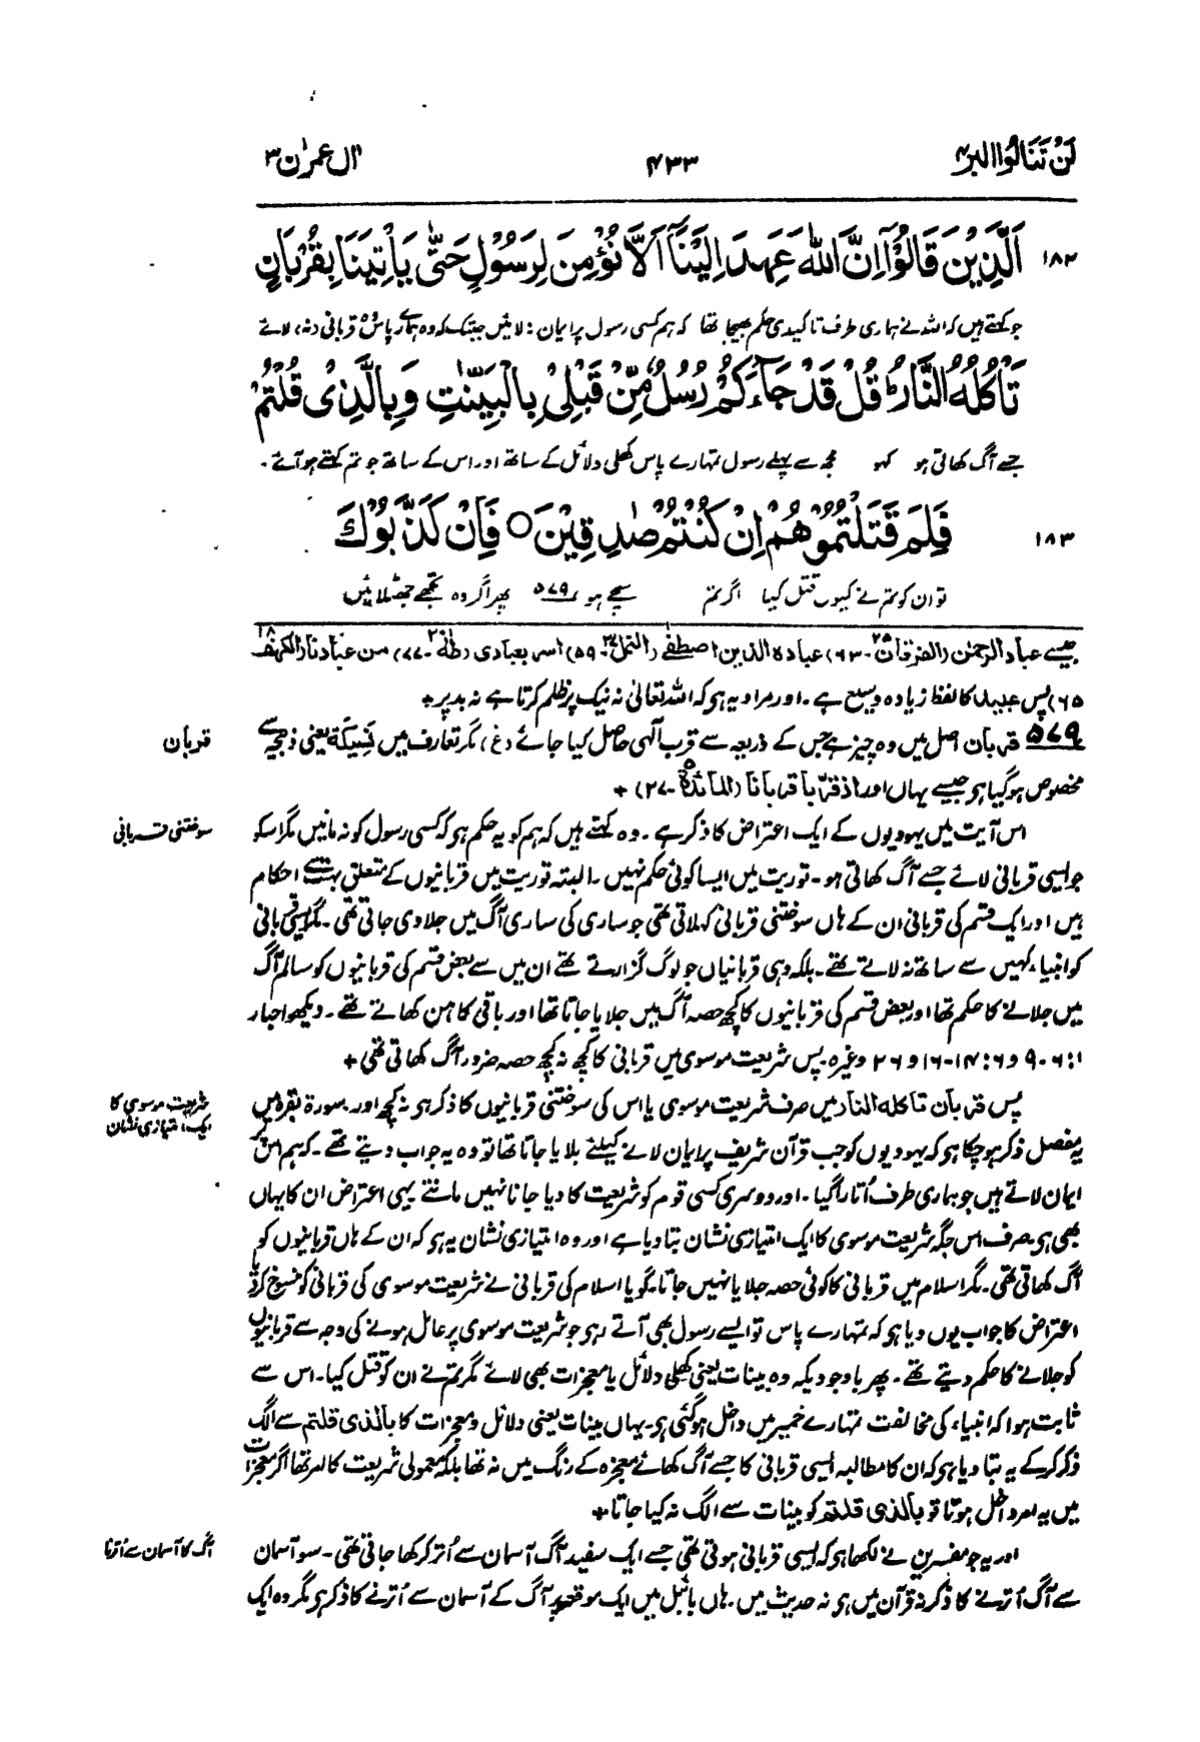 لَنْ تَنَالُوا البر۴ ۴۳۳ اٰل عمرٰن ۳
۱۸۲ اَلَّذِيْنَ قَالُوْٓا اِنَّ اللّٰهَ عَهِدَ اِلَيْنَآ اَلَّا نُؤْمِنَ لِرَسُوْلٍ حَتّٰى يَاْتِيَنَا بِقُرْبَانٍ
جو کہتے ہیں کہ اللہ نے ہماری طرف تاکیدی حکم بھیجا تھا کہ ہم کسی رسول پر ایمان نہ لائیں جبتک کہ وہ ہمارے پاس وہ قربانی دنہ، لائے
تَاْكُلُهُ النَّارُ ؕ قُلْ قَدْ جَآءَكُمْ رُسُلٌ مِّنْ قَبْلِىْ بِالْبَيِّنٰتِ وَبِالَّذِىْ قُلْتُمْ
جسے آگ کھاتی ہو کہو مجھ سے پہلے رسول تمہارے پاس کھلی دلائل کے ساتھ اور اس کے ساتھ جو تم کہتے ہو آئے۔
۱۸۳ فَلِمَ قَتَلْتُمُوْهُمْ اِنْ كُنْتُمْ صٰدِقِيْنَ ○ فَاِنْ كَذَّبُوْكَ
تو ان کو تم نے کیوں قتل کیا اگر تم سچے ہو ۵۷۹ پھر اگر وہ تجھے جھٹلائیں
جیسے عباد الرحمٰن (الفرقان ۲۵-۶۳) عبادہ الذین اصطفٰے (النمل ۲۷-۵۹) اسر بعبادی (طٰہٰ ۲۰-۷۷) من عبادنا (الکہف ۱۸
۶۵) پس عبید کا لفظ زیادہ وسیع ہے۔ اور مراد یہ ہو کہ اللہ تعالیٰ نہ نیک پر ظلم کرتا ہے نہ بد پر +
۵۷۹ قربان اصل میں وہ چیز ہے جس کے ذریعہ سے قرب آلٰہی حاصل کیا جائے (غ) مگر تعارف میں نَسِیْکَۃ یعنی ذبیحہ سے
قربان
مخصوص ہو گیا ہو جیسے یہاں اور اذ قرّبا قربانا (المائدۃ ۵-۲۷) +
اس آیت میں یہودیوں کے ایک اعتراض کا ذکر ہے۔ وہ کہتے ہیں کہ ہم کو یہ حکم ہو کہ کسی رسول کو نہ مانیں مگر اسکو
سوختنی قربانی
جو ایسی قربانی لائے جسے آگ کھاتی ہو۔ توریت میں ایسا کوئی حکم نہیں۔ البتہ توریت میں قربانیوں کے متعلق بہت سے احکام
ہیں اور ایک قسم کی قربانی ان کے ہاں سوختنی قربانی کہلاتی تھی جو ساری کی ساری آگ میں جلا دی جاتی تھی۔ مگر ایسی قربانی
کو انبیاء کہیں سے ساتھ نہ لاتے تھے۔ بلکہ وہی قربانیاں جو لوگ گزارتے تھے ان میں سے بعض قسم کی قربانیوں کو سالم آگ
میں جلانے کا حکم تھا اور بعض قسم کی قربانیوں کا کچھ حصہ آگ میں جلایا جاتا تھا اور باقی کاہن کھاتے تھے۔ دیکھو احبار
۱: ۶-۹ و ۶: ۱۴-۱۶ و ۲۶ وغیرہ۔ پس شریعت موسوی میں قربانی کا کچھ نہ کچھ حصہ ضرور آگ کھاتی تھی +
پس قربان تاکلہ النار میں صرف شریعت موسوی یا اس کی سوختنی قربانیوں کا ذکر ہو نہ کچھ اور۔ سورۃ بقرہ میں
شریعت موسوی کا
ایک امتیازی نشان
یہ مفصل ذکر ہو چکا ہو کہ یہودیوں کو جب قرآن شریف پر ایمان لانے کیلئے بلایا جاتا تھا تو وہ یہ جواب دیتے تھے۔ کہ ہم اس پر
ایمان لاتے ہیں جو ہماری طرف اُتارا گیا۔ اور دوسری کسی قوم کو شریعت کا دیا جانا نہیں مانتے یہی اعتراض ان کا یہاں
بھی ہو صرف اس جگہ شریعت موسوی کا ایک امتیازی نشان بتا دیا ہے اور وہ امتیازی نشان یہ ہو کہ ان کے ہاں قربانیوں کو
آگ کھاتی تھی۔ مگر اسلام میں قربانی کا کوئی حصہ جلایا نہیں جاتا۔ گویا اسلام کی قربانی نے شریعت موسوی کی قربانی کو منسوخ کر دیا
اعتراض کا جواب یوں دیا ہو کہ تمہارے پاس تو ایسے رسول بھی آتے رہو جو شریعت موسوی پر عامل ہونے کی وجہ سے قربانیوں
کو جلانے کا حکم دیتے تھے۔ پھر باوجودیکہ وہ بینات یعنی کھلی دلائل یا معجزات بھی لائے مگر تم نے ان کو قتل کیا۔ اس سے
ثابت ہوا کہ انبیاء کی مخالفت تمہارے خمیر میں داخل ہو گئی ہو۔ یہاں بینات یعنی دلائل و معجزات کا بالذی قلتم سے الگ
ذکر کر کے یہ بتا دیا ہو کہ ان کا مطالبہ ایسی قربانی کا جسے آگ کھائے معجزہ کے رنگ میں نہ تھا بلکہ معمولی شریعت کا امر تھا اگر معجزات
میں یہ امر داخل ہوتا تو بالذی قلتم کو بینات سے الگ نہ کیا جاتا +
اور یہ جو مفسرین نے لکھا ہو کہ ایسی قربانی ہوتی تھی جسے ایک سفید آگ آسمان سے اُتر کر کھا جاتی تھی۔ سو آسمان
آگ کا آسمان سے اُترنا
سے آگ اُترنے کا ذکر نہ قرآن میں ہو نہ حدیث میں۔ ہاں بائبل میں ایک موقعہ پر آگ کے آسمان سے اُترنے کا ذکر ہو مگر وہ ایک